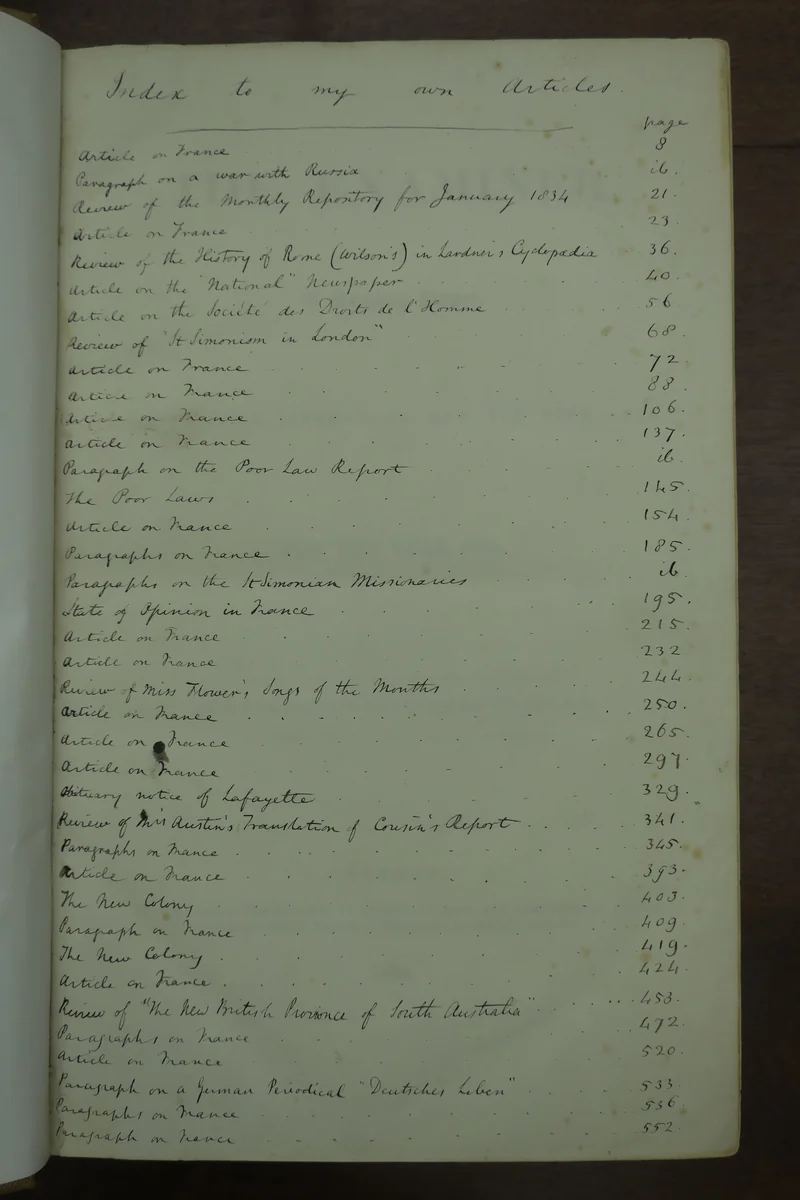 Index to my own Articles.
page
Article on France 8
Paragraph on a war with Russia ib.
Review of the Monthly Repository for January 1834 21.
Article on France 23.
Review of the History of Rome (Wilson's) in Lardner's Cyclopædia 36.
Article on the "National" Newspaper 40.
Article on the Société des Droits de l'Homme 56
Review of "St Simonism in London" 68.
Article on France 72.
Article on France 88.
Article on France 106.
Article on France 137.
Paragraph on the Poor Law Report ib.
The Poor Laws 145.
Article on France 154.
Paragraphs on France 185.
Paragraphs on the St Simonian Missionaries ib
State of Opinion in France 195.
Article on France 215.
Article on France 232
Review of Miss Flower's Songs of the Months 244.
Article on France 250.
Article on France 265.
Article on France 297.
Obituary notice of Lafayette 329.
Review of Mrs Austin's Translation of Cousin's Report 341.
Paragraphs on France 345.
Article on France 393.
The New Colony 403.
Paragraph on France 409.
The New Colony 419.
Article on France 424.
Review of "The New British Province of South Australia" 453.
Paragraphs on France 472.
Article on France 520.
Paragraph on a German Periodical "Deutsches Leben" 533.
Paragraphs on France 536
Paragraph on France 552.